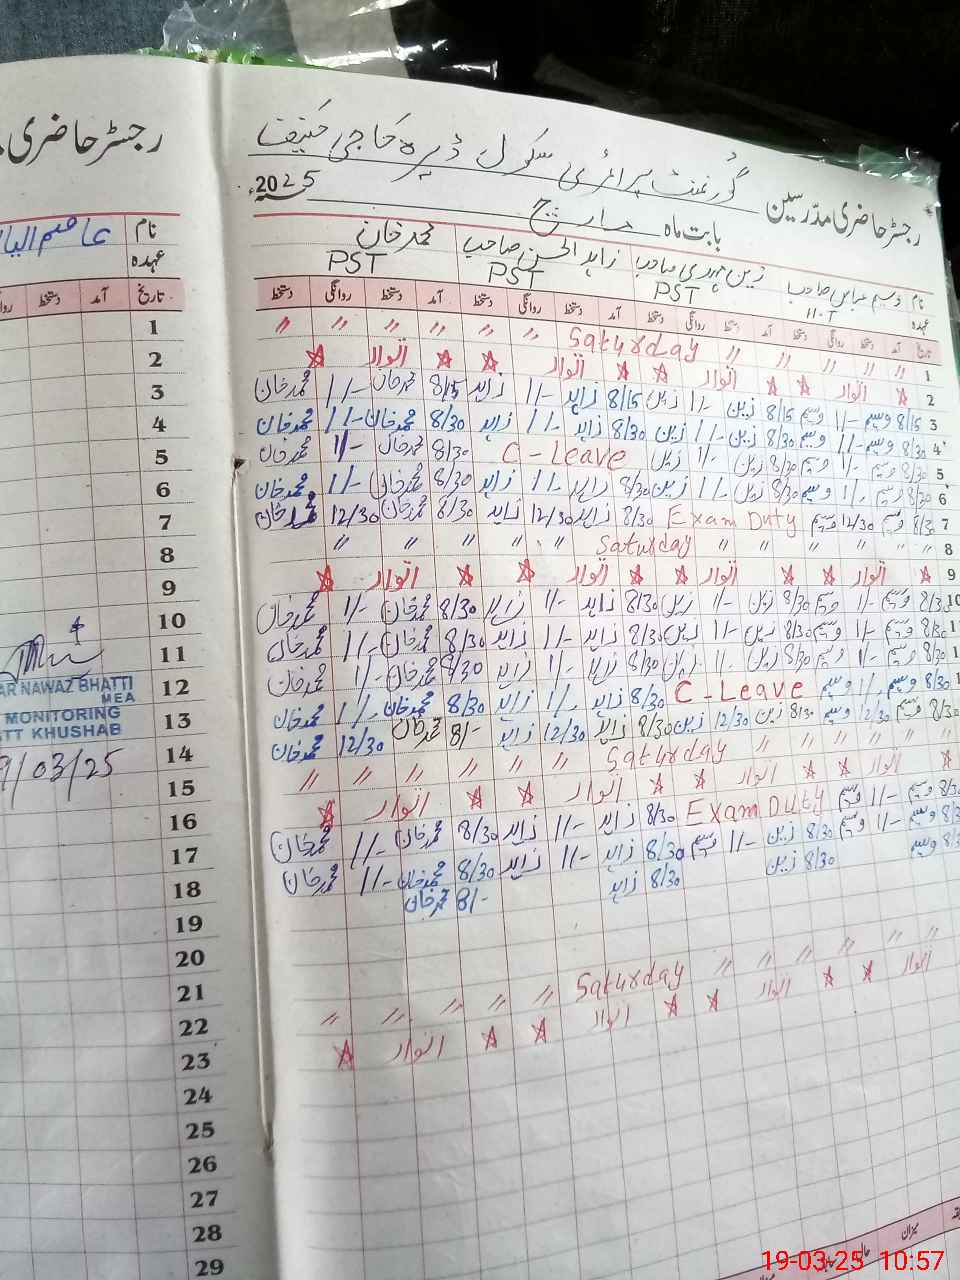 رجسٹر حاضری مدرسین گورنمنٹ پرائمری سکول ڈیرہ حاجی حنیف
بابت ماہ مارچ 2025ء
نام وسیم عباس صاحب زین مہدی صاحب زاہد الحسن صاحب محمد خان
عہدہ H.T PST PST PST
تاریخ آمد دستخط روانگی دستخط آمد دستخط روانگی دستخط آمد دستخط روانگی دستخط آمد دستخط روانگی دستخط
1 〃 〃 〃 〃 Saturday 〃 〃 〃 〃 〃 〃
2 اتوار اتوار اتوار اتوار
3 8/15 وسیم 11/- وسیم 8/15 زین 11/- زین 8/15 زاہد 11/- زاہد 8/15 محمد خان 11/- محمد خان
4 8/30 وسیم 11/- وسیم 8/30 زین 11/- زین 8/30 زاہد 11/- زاہد 8/30 محمد خان 11/- محمد خان
5 8/30 وسیم 11/- وسیم 8/30 زین 11/- زین C-Leave 8/30 محمد خان 11/- محمد خان
6 8/30 وسیم 11/- وسیم 8/30 زین 11/- زین 8/30 زاہد 11/- زاہد 8/30 محمد خان 11/- محمد خان
7 8/30 وسیم 12/30 وسیم Exam Duty 8/30 زاہد 12/30 زاہد 8/30 محمد خان 12/30 محمد خان
8 〃 〃 〃 〃 〃 〃 Saturday 〃 〃 〃 〃 〃
9 اتوار اتوار اتوار اتوار
10 8/30 وسیم 11/- وسیم 8/30 زین 11/- زین 8/30 زاہد 11/- زاہد 8/30 محمد خان 11/- محمد خان
8/30 وسیم 11/- وسیم 8/30 زین 11/- زین 8/30 زاہد 11/- زاہد 8/30 محمد خان 11/- محمد خان
وسیم 11/- وسیم 8/30 زین 11/- زین 8/30 زاہد 11/- زاہد 8/30 محمد خان 11/- محمد خان
8/30 وسیم 11/- وسیم C-Leave 8/30 زاہد 11/- زاہد 8/30 محمد خان 11/- محمد خان
8/30 وسیم 12/30 وسیم 8/30 زین 12/30 زین 8/30 زاہد 12/30 زاہد 8/- محمد خان 12/30 محمد خان
〃 〃 〃 〃 〃 Saturday 〃 〃 〃 〃 〃 〃
اتوار اتوار اتوار اتوار
8/30 وسیم 11/- وسیم Exam Duty 8/30 زاہد 11/- زاہد 8/30 محمد خان 11/- محمد خان
8/30 وسیم 11/- وسیم 8/30 زین 11/- وسیم 8/30 زاہد 11/- زاہد 8/30 محمد خان 11/- محمد خان
8/30 وسیم 8/30 زین 8/30 زاہد 8/- محمد خان
〃 〃 〃 〃 〃 〃 Saturday 〃 〃 〃 〃 〃
اتوار اتوار اتوار اتوار
میزان
رجسٹر حاضری
نام
عہدہ
تاریخ آمد دستخط
1
2
3
4
5
6
7
8
9
10
11
12
13
14
15
16
17
18
19
20
21
22
23
24
25
26
27
28
29
AR NAWAZ BHATTI
MEA
MONITORING
TT KHUSHAB
9/03/25
19-03-25 10:57